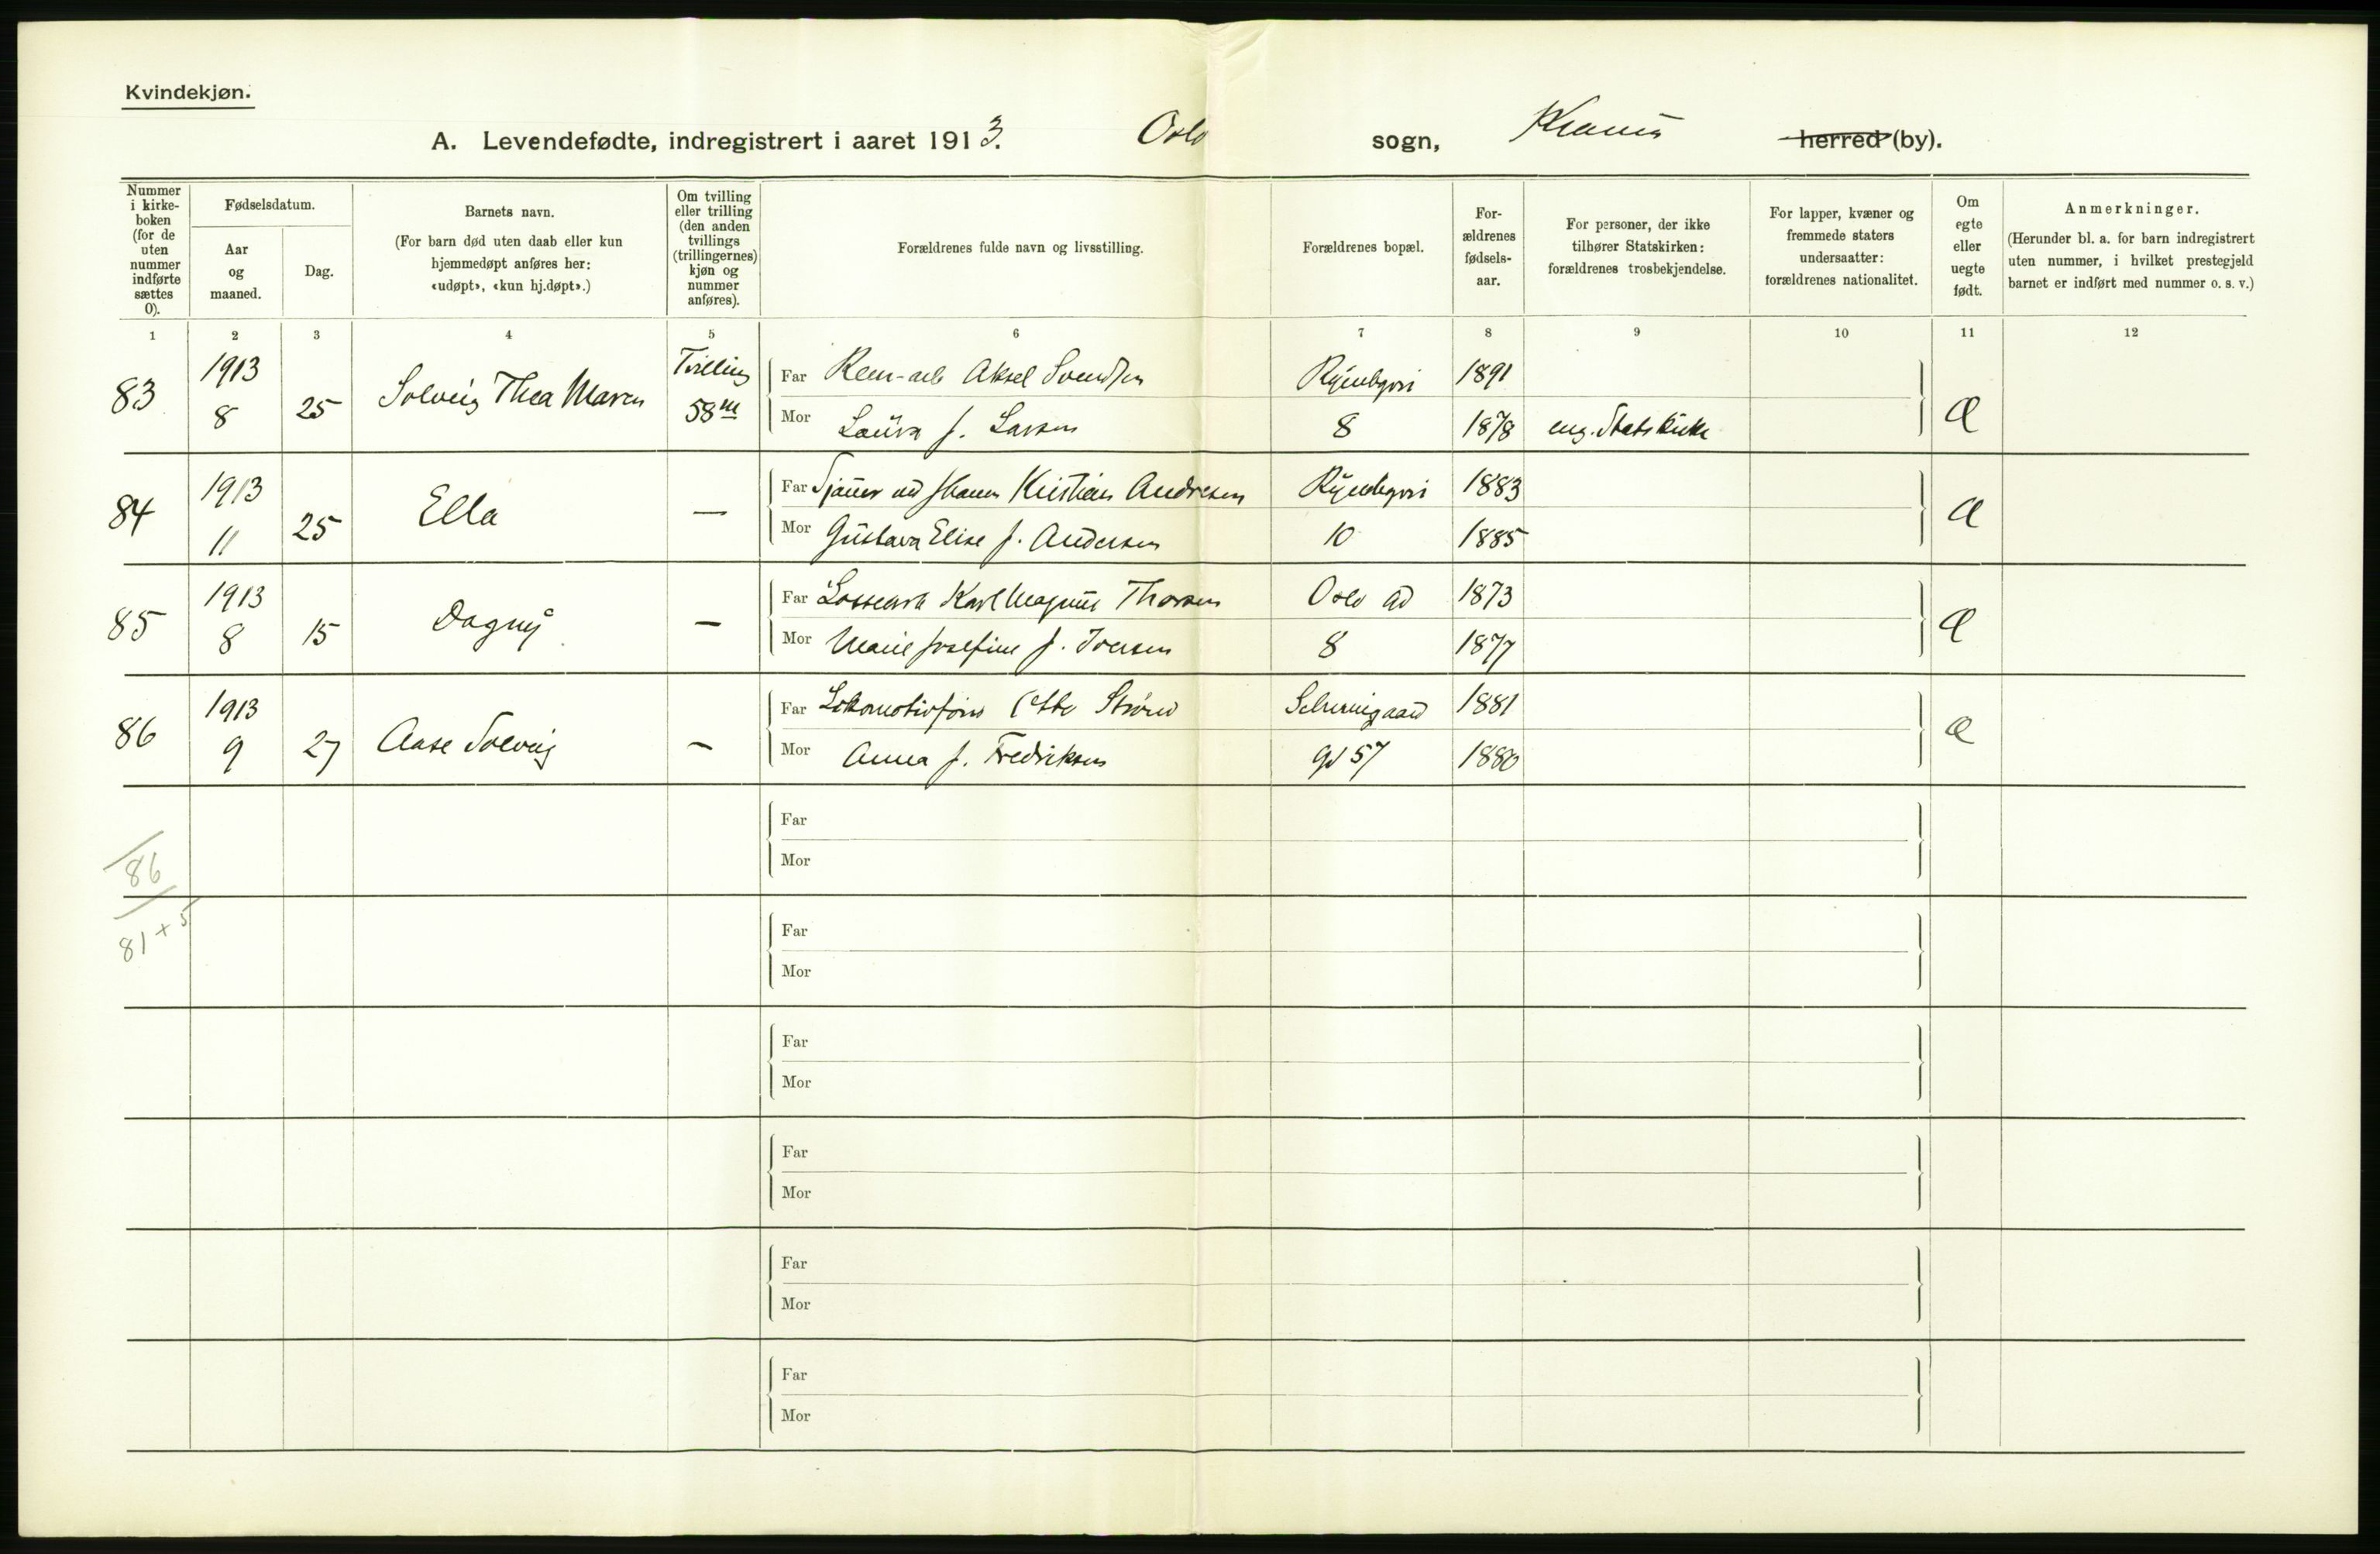 Kvindekjøn.
A. Levendefødte, indregistrert i aaret 1913. Oslo sogn, Krania herred (by).
Nummer i kirke-boken (for de uten nummer indførte sættes 0).
Fødselsdatum.
Aar og maaned.
Dag.
Barnets navn.
(For barn død uten daab eller kun hjemmedøpt anføres her: «udøpt», «kun hj.døpt».)
Om tvilling eller trilling (den anden tvillings (trillingernes) kjøn og nummer anføres).
Forældrenes fulde navn og livsstilling.
Forældrenes bopæl.
For-ældrenes fødsels-aar.
For personer, der ikke tilhører Statskirken: forældrenes trosbekjendelse.
For lapper, kvæner og fremmede staters undersaatter: forældrenes nationalitet.
Om egte eller uegte født.
Anmerkninger.
(Herunder bl. a. for barn indregistrert uten nummer, i hvilket prestegjeld barnet er indført med nummer o. s. v.)
1 2 3 4 5 6 7 8 9 10 11 12
83 1913 Tvilling Far Ren-arb Aksel Svendsen 1891
8 25 Solveig Thea Maren 58 m Mor Laura f. Larsen 8 1878 eng. Statskirke Æ
84 1913 Far Kristian Andresen 1883
11 25 Ella — Mor Gustava Elise f. Andersen 10 1885 Æ
85 1913 Far Lossearb Karl Magnus Thorsen Oslo 1873
8 15 Dagny — Mor Marie Josefine f. Iversen 8 1877 Æ
86 1913 Far Otto 1881
9 27 Aase Solveig — Mor Anna f. Fredriksen gd 57 1880 Æ
Far
Mor
86
Far
81 + 5
Mor
Far
Mor
Far
Mor
Far
Mor
Far
Mor